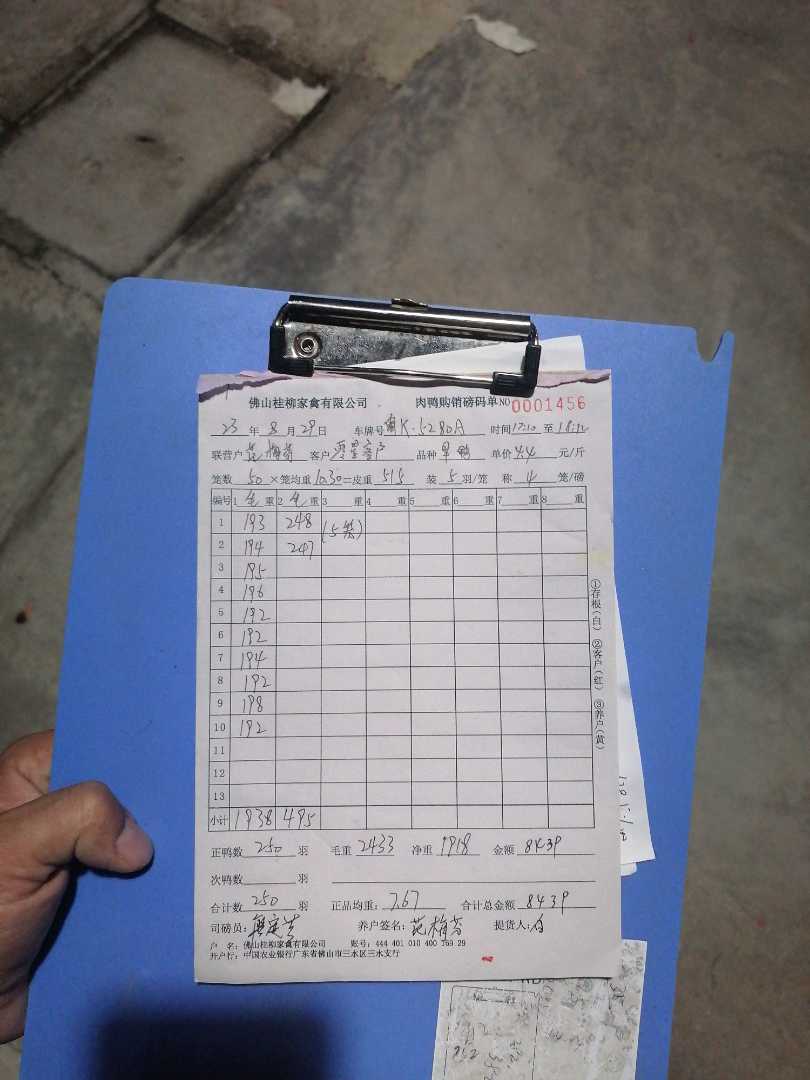 佛山桂柳家禽有限公司 肉鸭购销磅码单 NO 0001456
23 年 8 月 29日 车牌号 K·5280A 时间 17:10 至 18:12
联营户 范梅芬 客户 品种 单价 4.4 元/斤
笼数 50 ×笼均重 10.30 =皮重 515 装 5 羽/笼 称 4 笼/磅
编号 1 毛 重 2 毛 重 3 重 4 重 5 重 6 重 7 重 8 重
1 193 248 (5笼)
2 194 247
3 195
4 196
5 192
6 192
7 194
8 192
9 198
10 192
11
12
13
小计 1938 495
正鸭数 250 羽 毛重 2433 净重 1918 金额 8439
次鸭数 羽
合计数 250 羽 正品均重: 7.67 合计总金额 8439
司磅员: 养户签名: 范梅芬 提货人:
户 名: 佛山桂柳家禽有限公司 账号: 444 401 010 400 769 29
开户行: 中国农业银行广东省佛山市三水区三水支行
①存根(白) ②客户(红) ③养户(黄)